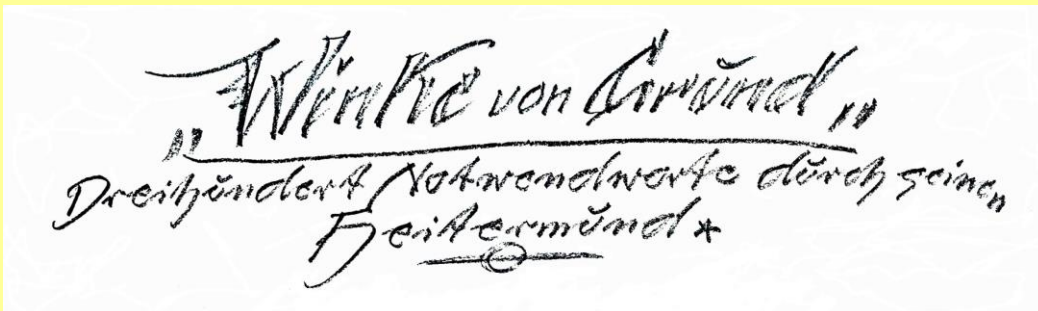 „Winke von Grund„
Dreihundert Notwendworte durch seinen
Heitermund*